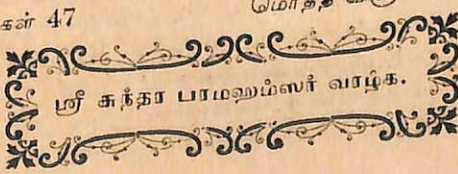 கள் 47
ஸ்ரீ சுந்தா பரமஹம்ஸர் வாழ்க.